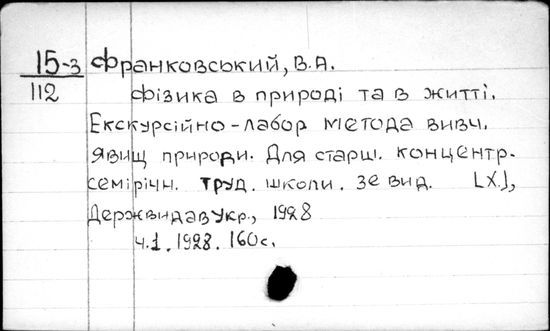 15-з Франковський, В.А.
112 Фізика в природі та в житті.
Екскурсійно-лабор метода вивч.
явищ природи. Для старш. концентр.
семірічн. труд. школи. 3е вид. [Х.],
Держвидав Укр., 1928
ч.1. 1928. 160с.